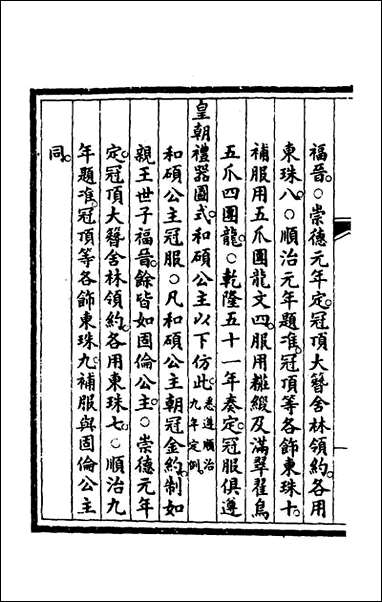 福晉○崇德元年定冠頂大簪舍林領約各用
東珠八○順治元年題准冠頂等各飾東珠十
補服用五爪團龍文四服用糚緞及滿翠翟鳥
五爪四團龍○乾隆五十一年奏定冠服俱遵
皇朝禮器圖式和碩公主以下仿此悉遵順治九年定例
和碩公主冠服○凡和碩公主朝冠金約制如
親王世子福晉餘皆如固倫公主○崇德元年
定冠頂大簪舍林領約各用東珠七○順治九
年題准冠頂等各飾東珠九補服與固倫公主
同